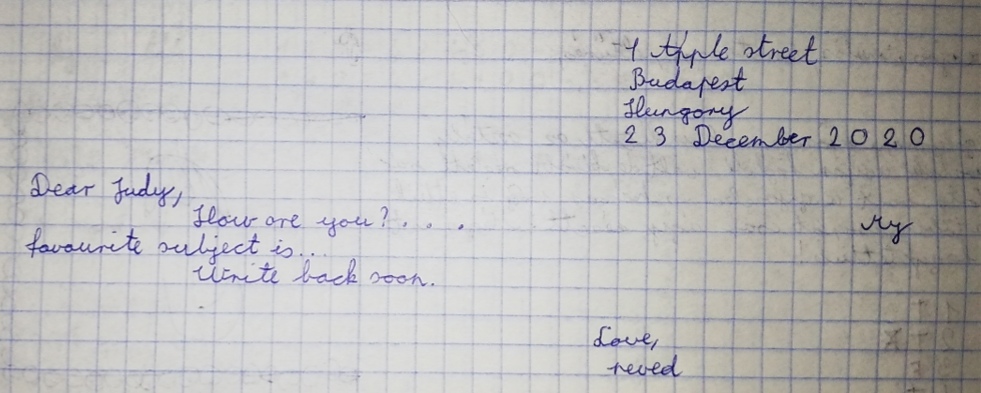 1 Apple street
Budapest
Hungory
23 December 2020
Dear Judy,
How are you?.... My
favourite subject is...
Write back soon.
Love,
neved